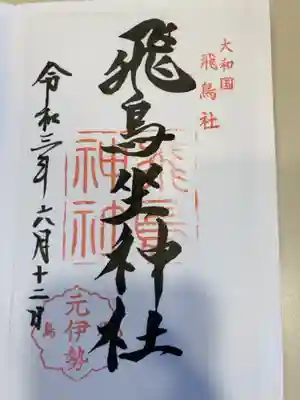 大和国
飛鳥社
飛鳥坐神社
飛鳥
神社
令和三年六月十二日
元伊勢